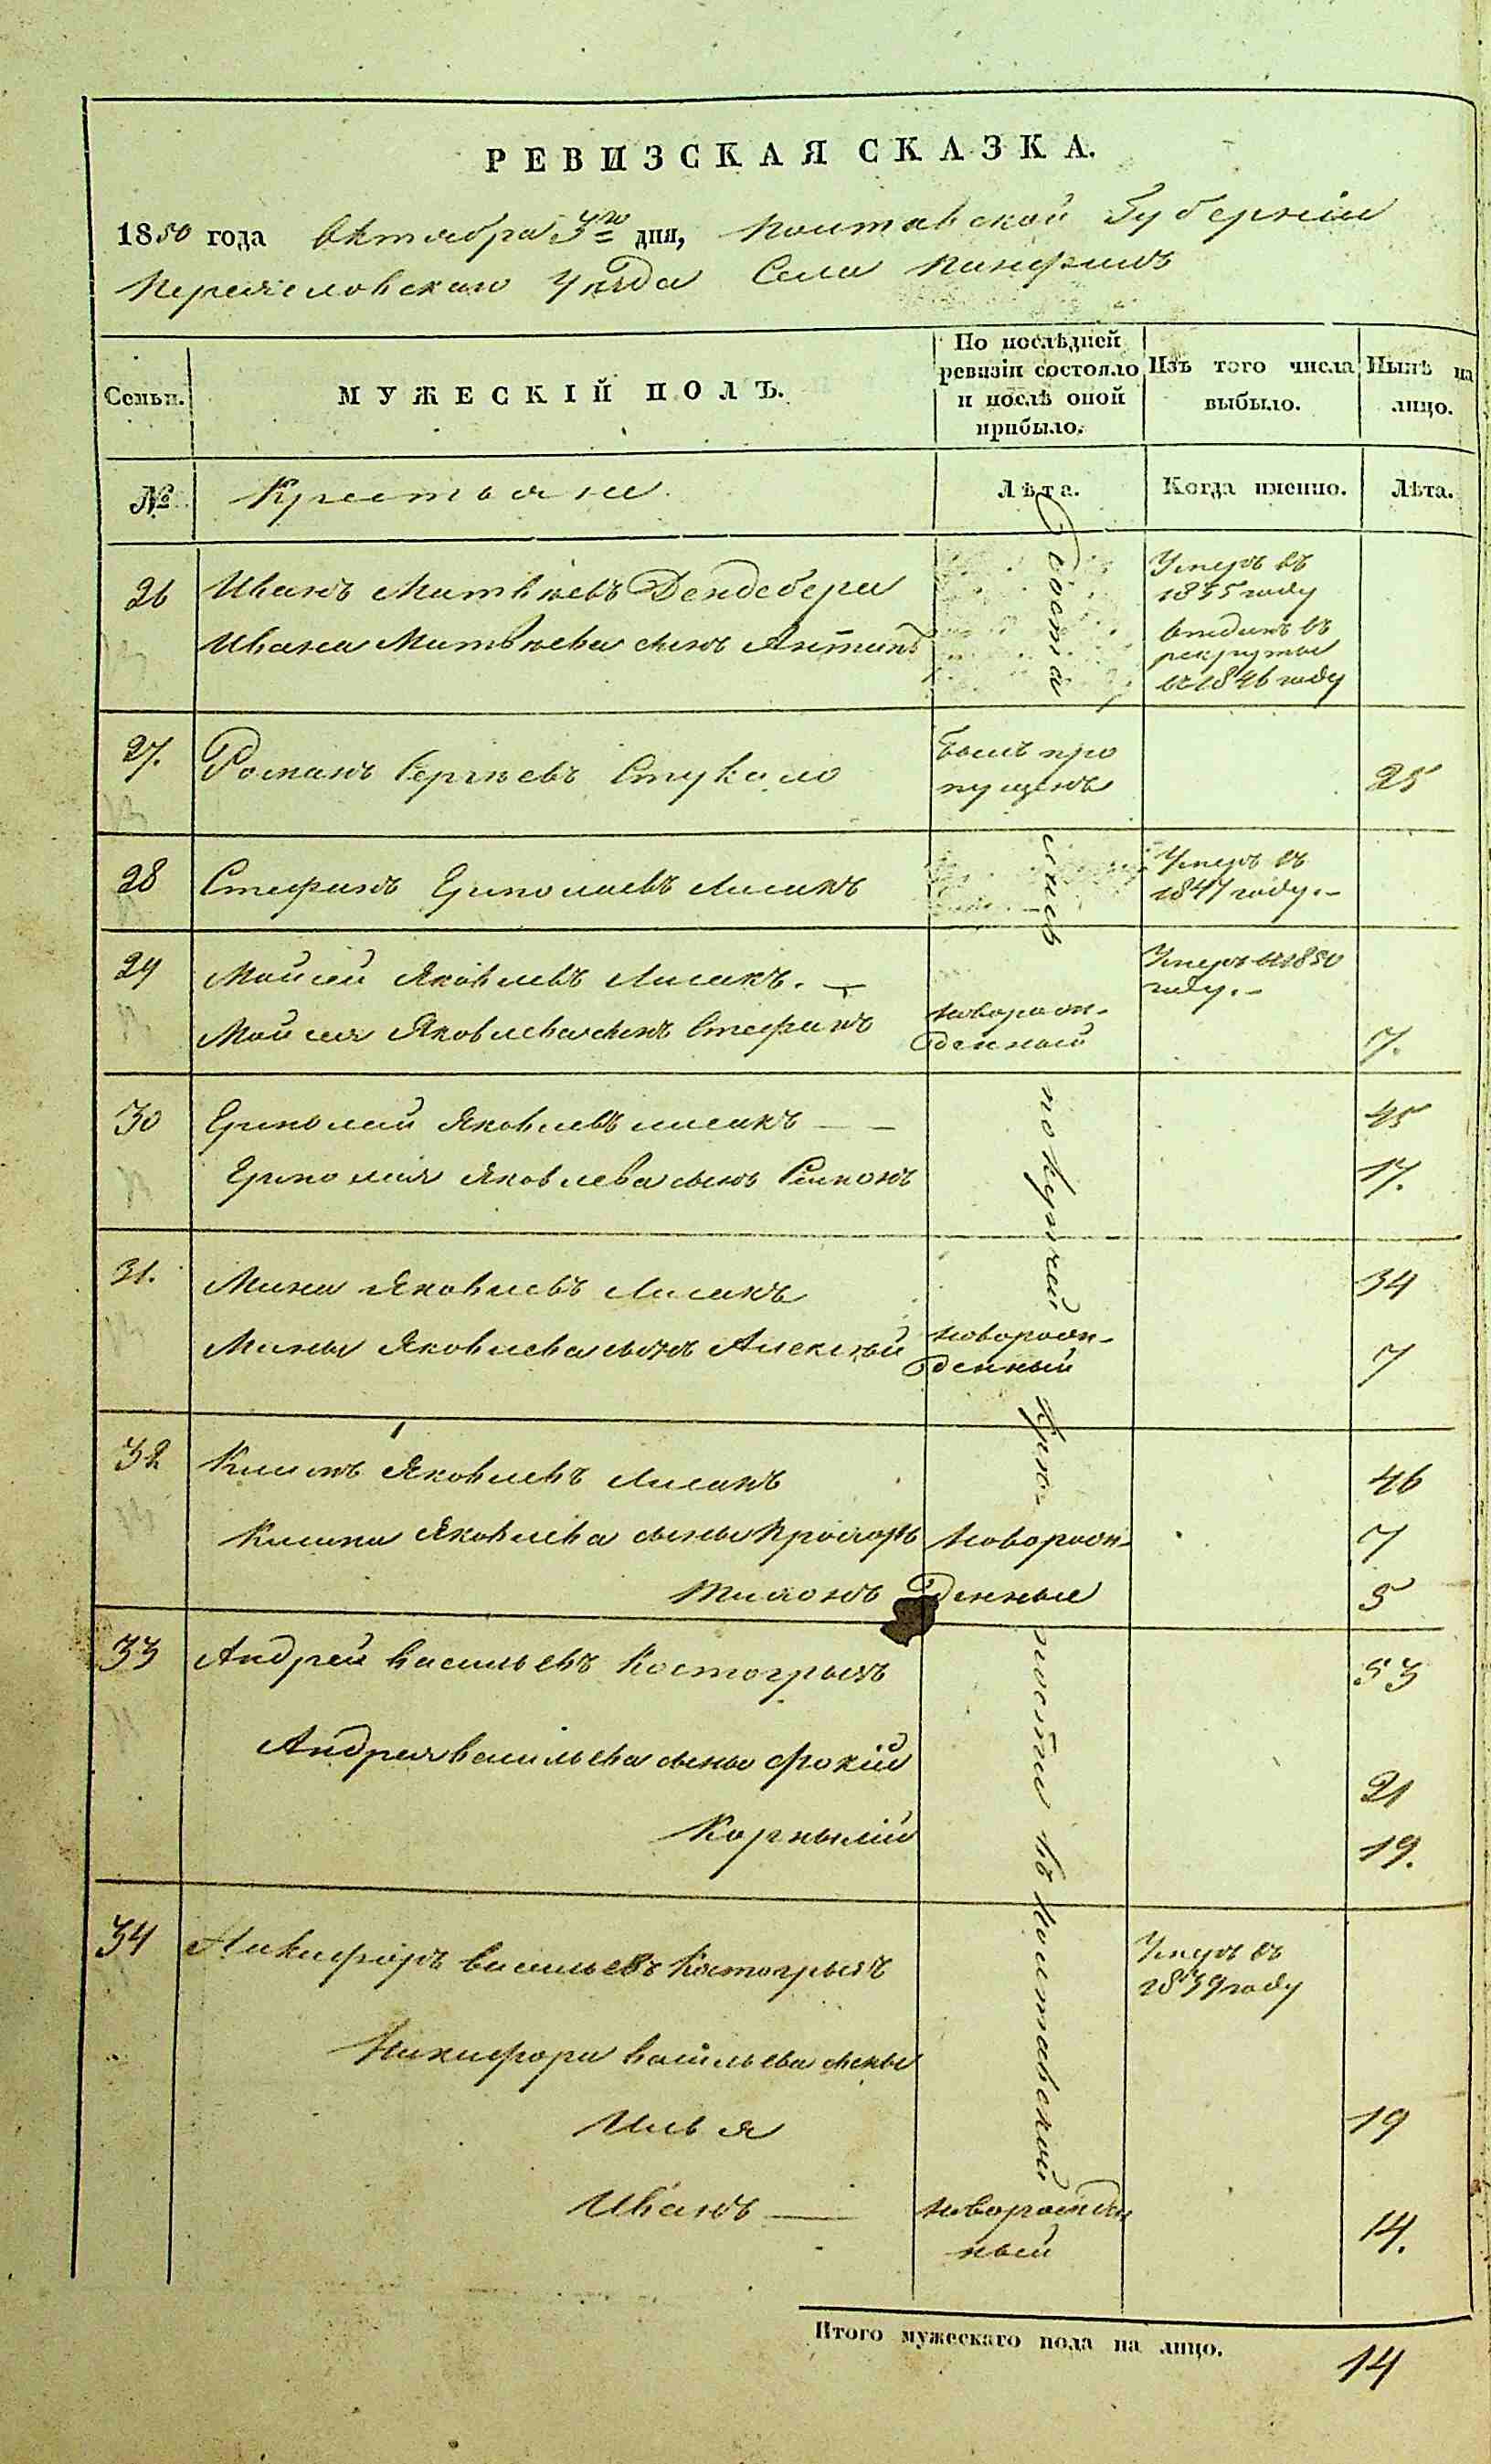 РЕВИЗСКАЯ СКАЗКА.
1850 года Октября 3го дня, Полтавской Губерніи
Переяславскаго Уѣзда Села Панфилъ
Семьи.
МУЖЕСКІЙ ПОЛЪ.
По послѣдней
ревизіи состояло
и послѣ оной
прибыло.
Изъ того числа
выбыло.
Нынѣ на
лицо.
№
Крестьяне.
Лѣта.
Когда именно.
Лѣта.
26 Иванъ Матвѣевъ Дендебера
Умеръ въ
1835 году
Ивана Матвѣева сынъ Антипъ
отданъ въ
рекруты
въ 1846 году
27. Романъ Сергѣевъ Стукало
былъ про
пущенъ
25
28 Стефанъ Ермолаевъ Лисакъ
Умеръ въ
1847 году.-
29 Мойсей Яковлевъ Лисакъ. —
Умеръ въ 1850
году.-
Мойсея Яковлева сынъ Стефанъ
новорож-
денный
7.
30 Ермолай Яковлевъ Лисакъ — —
45
Ермолая Яковлева сынъ Симонъ
17.
31. Мина Яковлевъ Лисакъ
34
Мины Яковлева сынъ Алексѣй
новорож-
денный
7
32 Климъ Яковлевъ Лисакъ
46
Клима Яковлева сыны Прохоръ новорож-
7
Тихонъ денные
5
33 Андрей Васильевъ Костогрызъ
53
Андрея Васильева сыны Фокій
21
Корнылій
19.
34 Никифоръ Васильевъ Костогрызъ
Умеръ въ
1839 году
Никифора Васильева сыны
Илья
19
Иванъ — новорожден
ный
14.
состоялись по кутчей крѣпости въ Полтавской
Итого мужескаго пола на лицо.
14